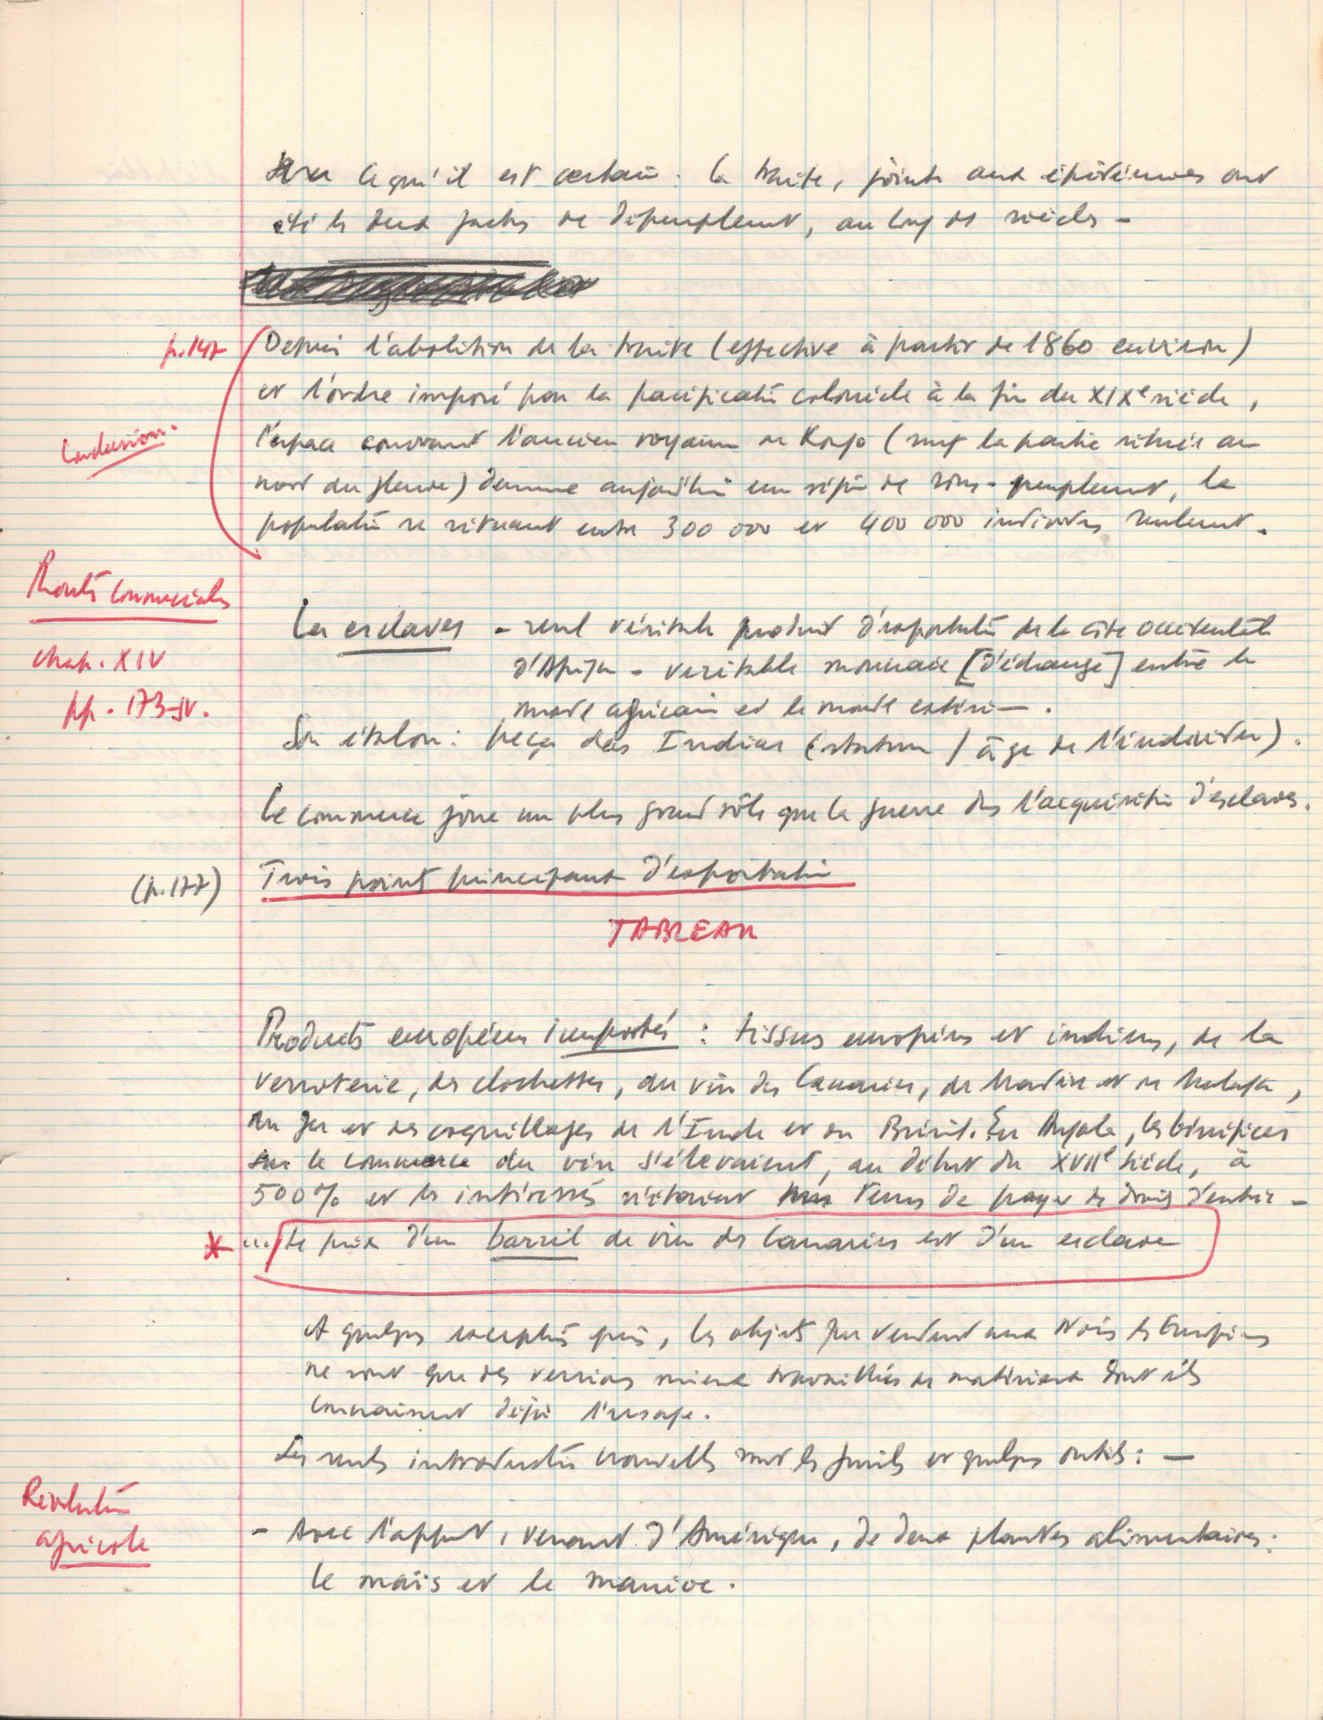 ce qu'il est certain : la traite, jointe aux épidémies ont
été les deux facteurs de dépeuplement, au long des siècles –
p. 147
Depuis l'abolition de la traite (effective à partir de 1860 environ)
et l'ordre imposé par la pacification coloniale à la fin du XIXe siècle,
Conclusion.
l'espace couvrant l'ancien royaume de Kongo (sauf la partie située au
nord du fleuve) demeure aujourd'hui une région de sous-peuplement, la
population se situant entre 300 000 et 400 000 individus seulement.
Routes commerciales
chap. XIV
pp. 173-sv.
Les esclaves – seul véritable produit d'exportation de la côte occidentale
d'Afrique – véritable monnaie [d'échange] entre le
monde africain et le monde extérieur – .
Son étalon : peça das Indias (stature / âge de l'individu).
Le commerce joue un plus grand rôle que la guerre dans l'acquisition d'esclaves.
(p. 177)
Trois points principaux d'exportation
TABLEAU
Produits européens importés : tissus européens et indiens, de la
verroterie, des clochettes, du vin des Canaries, de Madère et de Malaga,
du fer et des coquillages de l'Inde et du Brésil. En Angola, les bénéfices
sur le commerce du vin s'élevaient, au début du XVIIe siècle, à
500% et les intéressés n'étaient tenus de payer de droits d'entrée –
* ... le prix d'un barril de vin des Canaries est d'un esclave
A quelques exceptions près, les objets que vendent aux Noirs les Européens
ne sont que des versions mieux travaillées de matériaux dont ils
connaissent déjà l'usage.
Les seules introductions nouvelles sont les fusils et quelques outils : –
Révolution
agricole
– Avec l'apport, venant d'Amérique, de deux plantes alimentaires :
le maïs et le manioc.